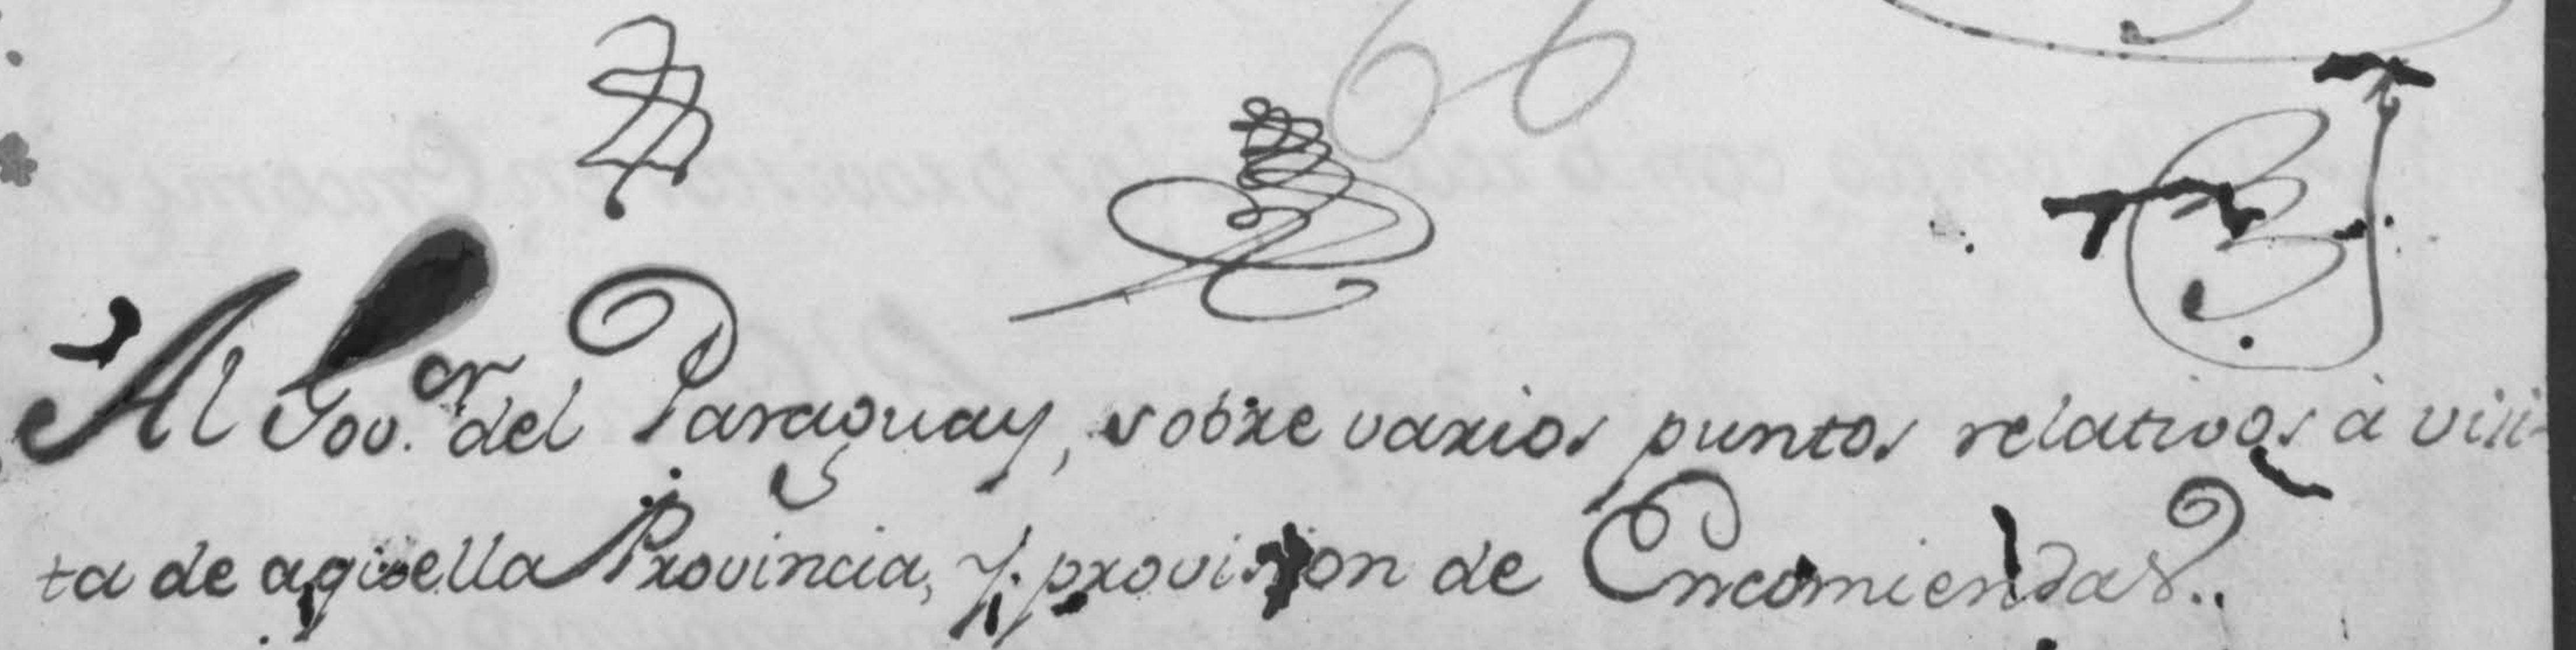 66
Al Gov.or del Paraguay, sobre varios puntos relativos à visi-
ta de aquella Provincia, y provision de Encomiendas..